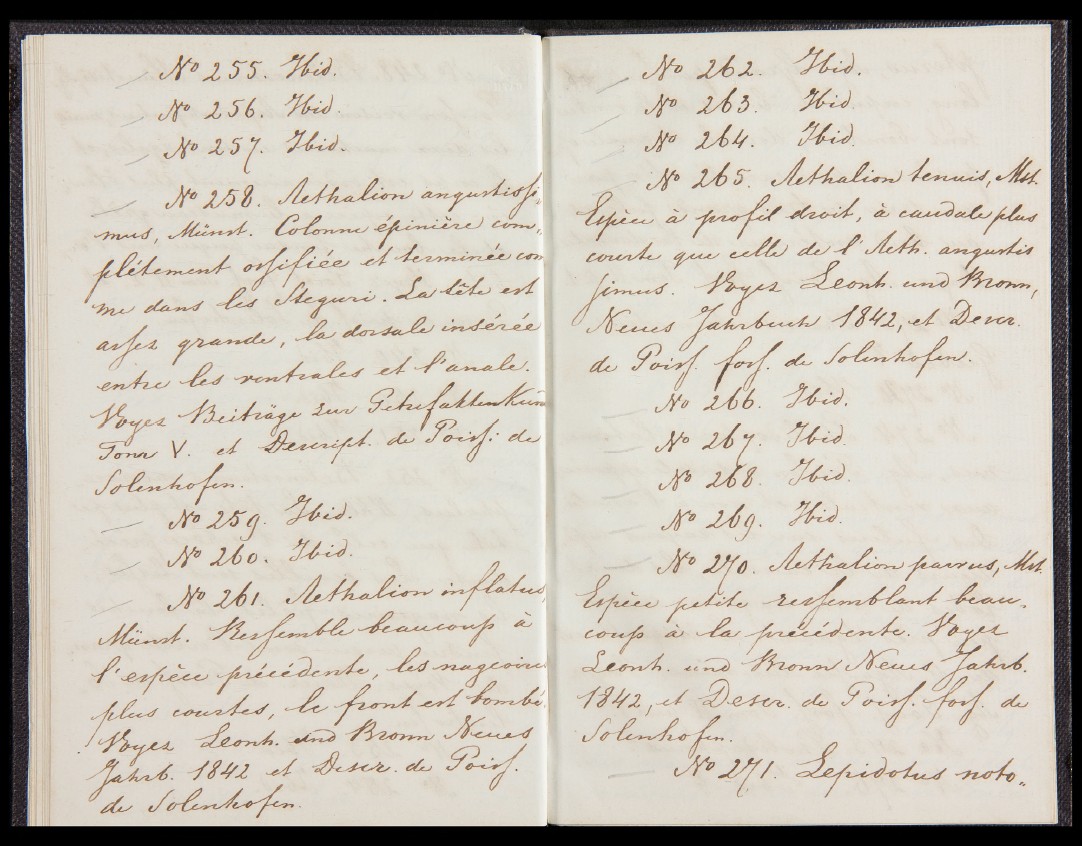 — No 255. Ibid.
— No 256. Ibid.
— No 257. Ibid.
— No 258. Aethalion angustissi„
mus, Münst. Colonne épinière com„
plétement ossifiée et terminée com
me dans les Steguri. La tête est
assez grande, la dorsale insérée
entre les ventrales et l'anale.
Voyez Beiträge zur Petrefakten Kun
Tom V. et Descript. de Poiss: de
Solenhofen.
— No 259. Ibid.
— No 260. Ibid.
— No 261. Aethalion inflatus,
Münst. Ressemble beaucoup à
l'espèce précédente, les nageoires
plus courtes, le front est bombé.
Voyez Leonh. und Bronn Neues
Jahrb. 1842 et Descr. de Poiss.
de Solenhofen.
— No 262. Ibid.
— No 263. Ibid.
— No 264. Ibid.
— No 265. Aethalion tenuis, Mst.
Espèce à profil droit, à caudale plus
courte que celle de l'Aeth. angustis
simus. Voyez Leonh. und Bronn,
Neues Jahrbuch 1842, et Descr.
de Poiss. foss. de Solenhofen.
— No 266. Ibid.
— No 267. Ibid.
— No 268. Ibid.
— No 269. Ibid.
— No 270. Aethalion parvus, Mst.
Espèce petite ressemblant beau„
coup à la précédente. Voyez
Leonh. und Bronn Neues Jahrb.
1842, et Descr. de Poiss. foss. de
Solenhofen.
— No 271. Lepidotus noto„